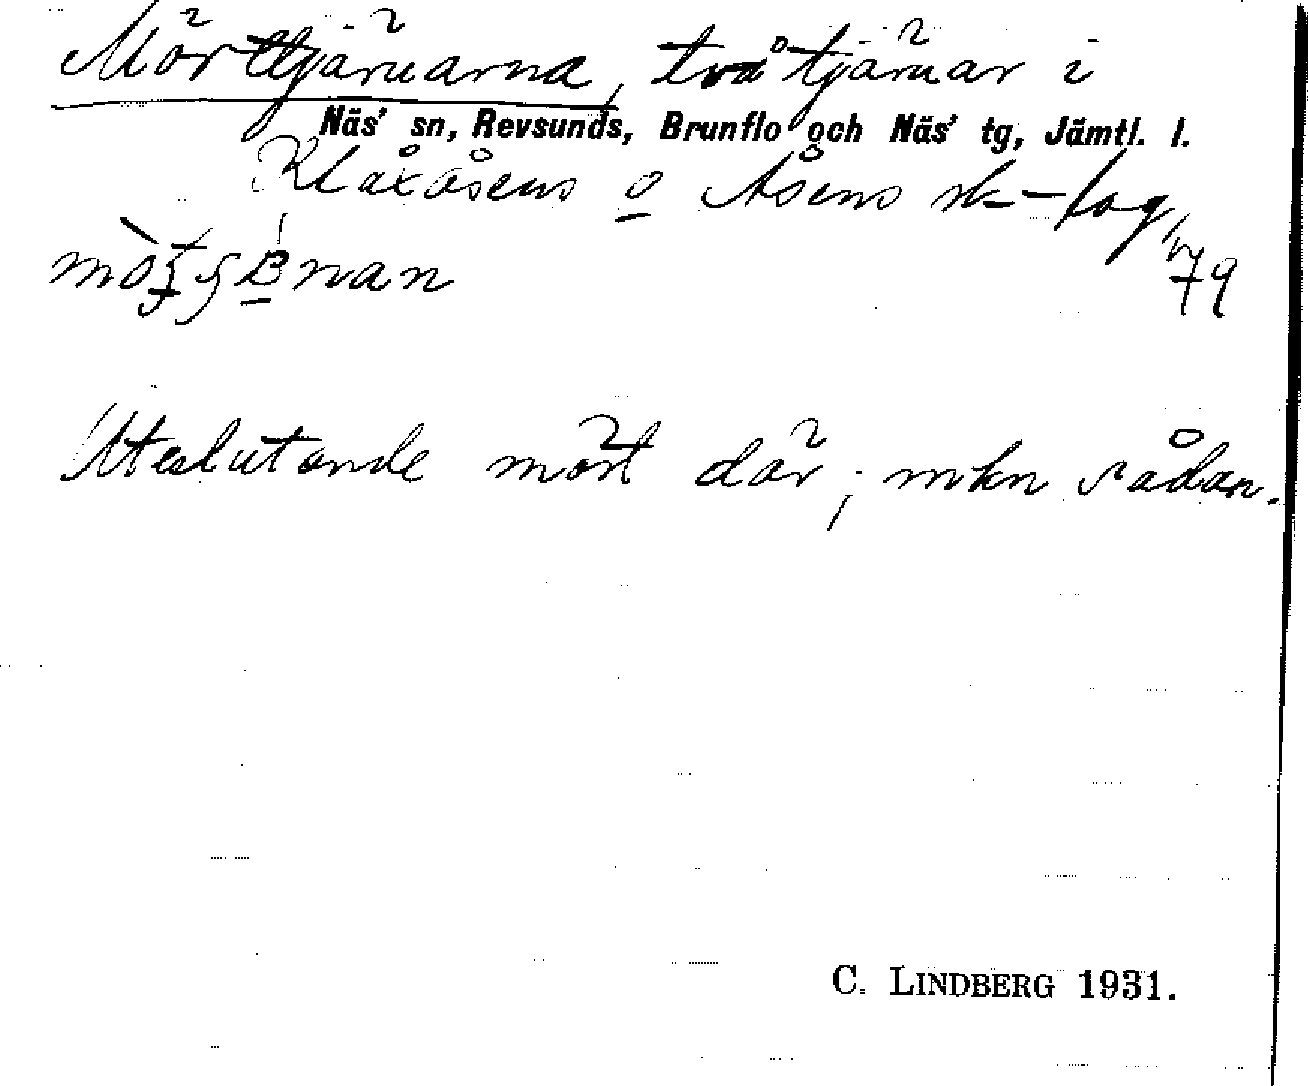 Mörttjärnarna, två tjärnar i
Näs' sn, Revsunds, Brunflo och Näs' tg, Jämtl. l.
Klaxåsens o Åsens sk-lag
79
Uteslutande mört där; mkn sådan.
C. LINDBERG 1931.